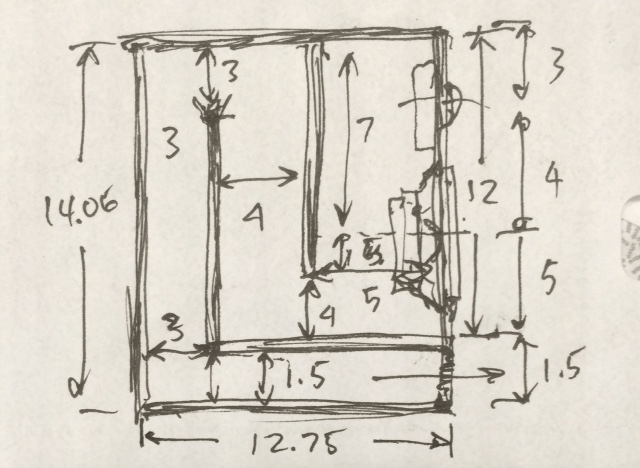 3
3
3
7
12
4
14.06
4
5
5
4
3
1.5
1.5
12.75